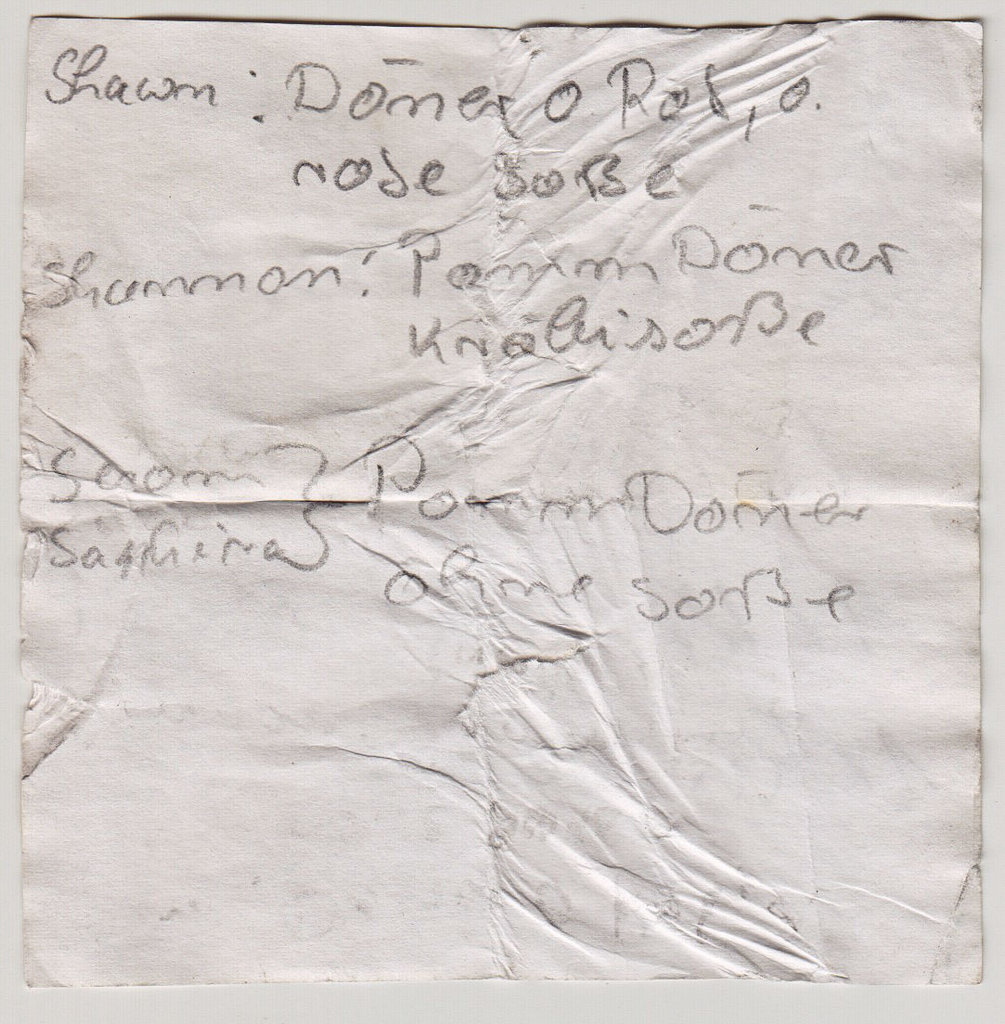 Shawn: Döner o. Rot, o.
rote Soße
Shannon: Pomm Döner
Knobisoße
Saomi } Pomm Döner
Saphira } ohne Soße